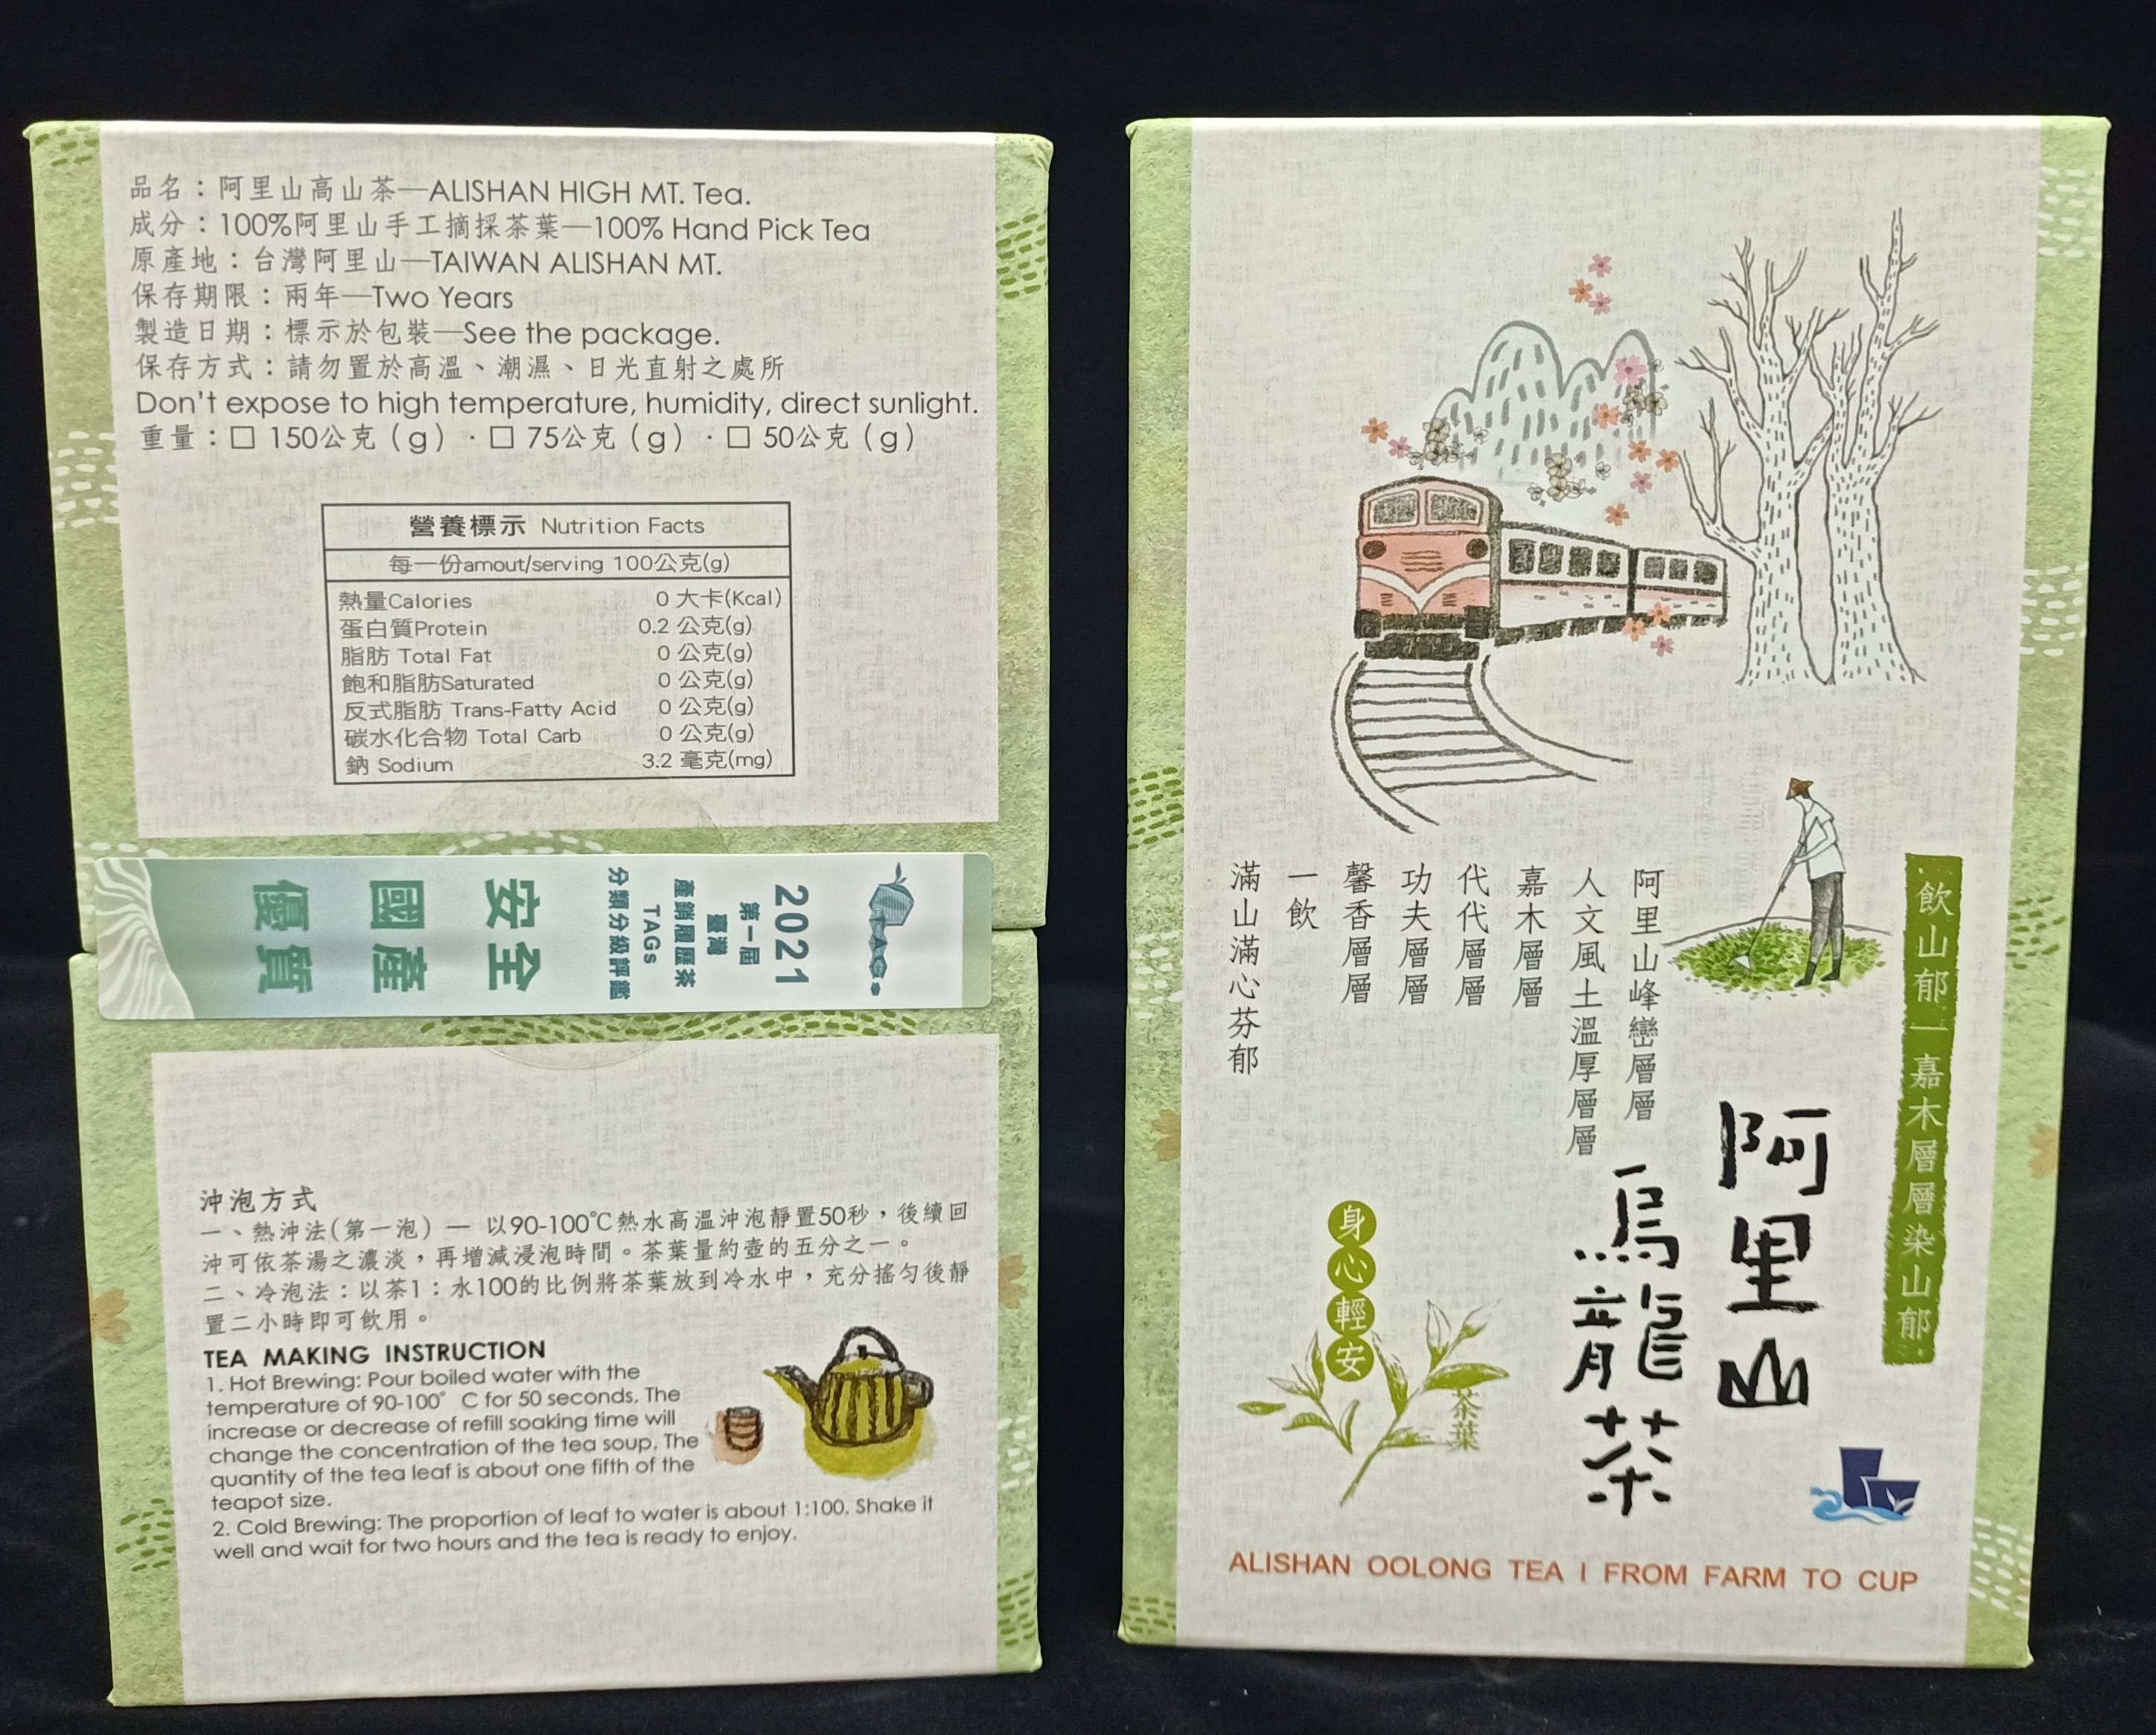 品名：阿里山高山茶—ALISHAN HIGH MT. Tea.
成分：100%阿里山手工摘採茶葉—100% Hand Pick Tea
原產地：台灣阿里山—TAIWAN ALISHAN MT.
保存期限：兩年—Two Years
製造日期：標示於包裝—See the package.
保存方式：請勿置於高溫、潮濕、日光直射之處所
Don't expose to high temperature, humidity, direct sunlight.
重量：□ 150公克（g）．□ 75公克（g）．□ 50公克（g）
營養標示 Nutrition Facts
每一份amout/serving 100公克(g)
熱量Calories 0 大卡(Kcal)
蛋白質Protein 0.2 公克(g)
脂肪 Total Fat 0 公克(g)
飽和脂肪Saturated 0 公克(g)
反式脂肪 Trans-Fatty Acid 0 公克(g)
碳水化合物 Total Carb 0 公克(g)
鈉 Sodium 3.2 毫克(mg)
2021
第一屆
臺灣
產銷履歷茶
TAGs
分類分級評鑑
安全
國產
優質
沖泡方式
一、熱沖法(第一泡) — 以90-100℃熱水高溫沖泡靜置50秒，後續回
沖可依茶湯之濃淡，再增減浸泡時間。茶葉量約壺的五分之一。
二、冷泡法：以茶1：水100的比例將茶葉放到冷水中，充分搖勻後靜
置二小時即可飲用。
TEA MAKING INSTRUCTION
1. Hot Brewing: Pour boiled water with the
temperature of 90-100° C for 50 seconds. The
increase or decrease of refill soaking time will
change the concentration of the tea soup. The
quantity of the tea leaf is about one fifth of the
teapot size.
2. Cold Brewing: The proportion of leaf to water is about 1:100. Shake it
well and wait for two hours and the tea is ready to enjoy.
飲山郁—嘉木層層染山郁
阿里山
烏龍茶
阿里山峰巒層層
人文風土溫厚層層
嘉木層層
代代層層
功夫層層
馨香層層
一飲
滿山滿心芬郁
身心輕安
茶葉
ALISHAN OOLONG TEA | FROM FARM TO CUP